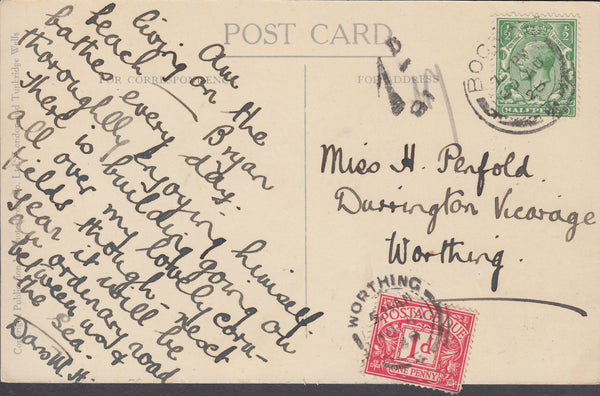 POST CARD
FOR CORRESPONDENCE
FOR ADDRESS
Am
living on the
beach Bryan
bathes every day.
thoroughly enjoying himself.
there is building going on
all over my lovely corn-
fields though - next
year it will be
an ordinary road
between us &
the sea.
HALFPENNY
Miss H. Penfold.
Durrington Vicarage
Worthing.
WORTHING
POSTAGE DUE
1d
ONE PENNY